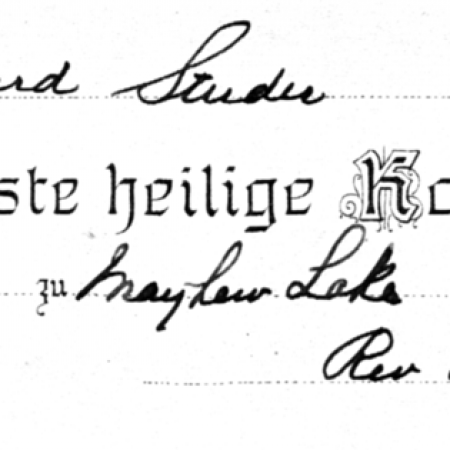 ard Studer
ste heilige Ko
zu Mayhew Lake
Rev